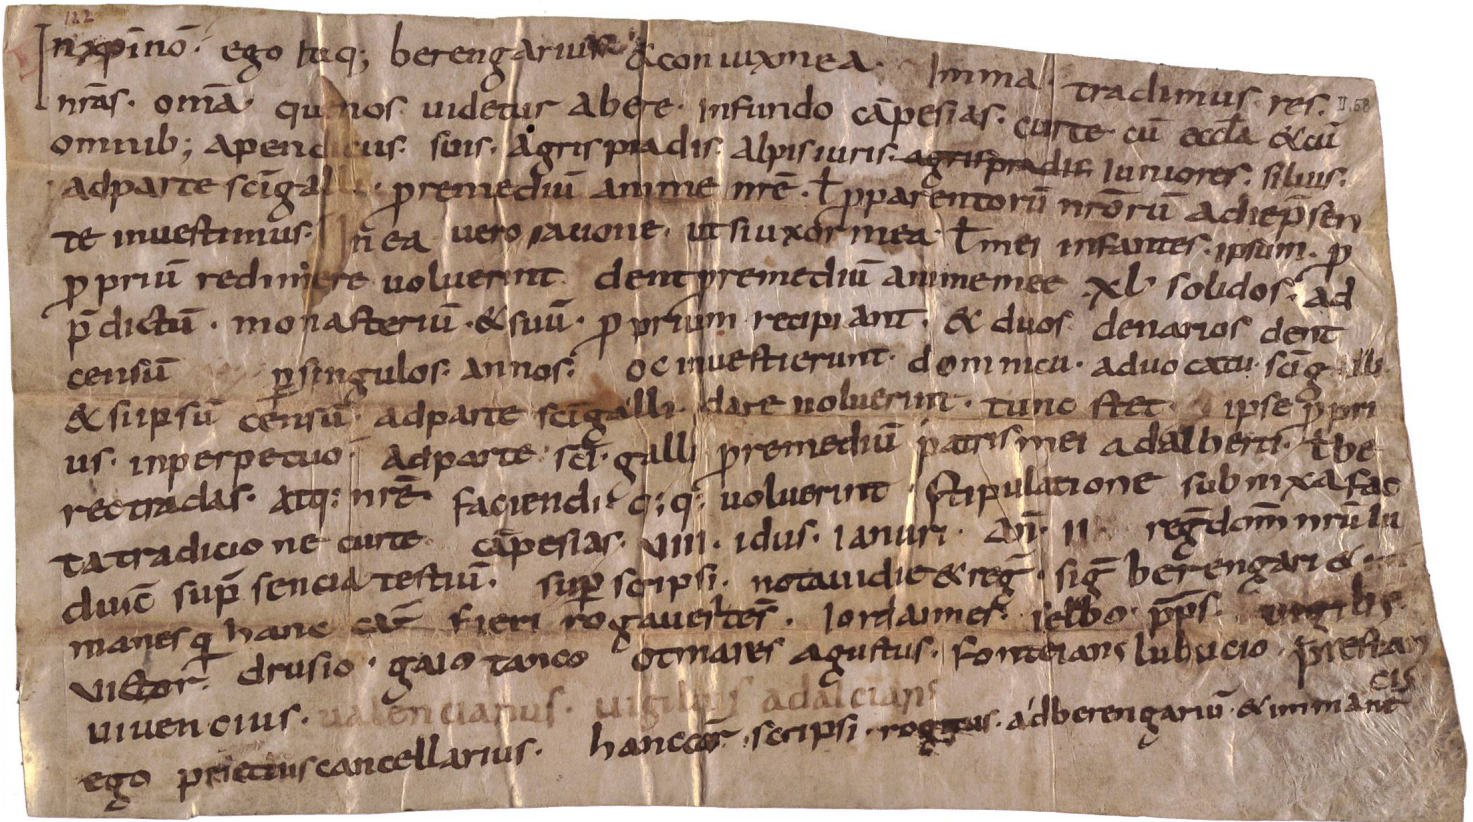 122
In xp̄i nō · ego itaq; berengarius & coniux mea · Imma · tradimus · res · II.58
nrās · omā · quę nos uidetur abere · in fundo cāpesias · curte cū eccła & cū
omnib; apendicius · suis · agris pradis · alpis iuris · agris pradis iuniores · siluis ·
ad parte scī galli · pro remediū anime nrē · ł pro parentorū nrōrū a die p̄sen
te inuestimus · In ea uero racione · ut si uxor mea ł mei infantes · ipsum · ꝓ
ꝓpriū redimere uoluerint dent pro remediū anime mee · xl solidos · ad
p̄dictū · monasteriū · & suū · ꝓprium recipiant · & duos denarios dent
censū ꝑ singulos · annos · oc inuestierunt · dominicu · aduocatu · scī galli
& si ipsū censū · ad parte scī galli · dare noluerint · tunc stet · ipse ꝓpri
us · in perpetuo · ad parte · scī · galli pro remediū patris mei adalberti · ł be
rectradas · atq; nrē faciendi c; q; uoluerint · stipulatione subnixa fac
ta tradicione curte cāpesias · VIII · idus · ianuri · an̄ · II · reg̃ dom̄ nrū lu
duic̄ sup̄ sencia testiū · supscripsi · notaui die & reg̃ · sig̃ berengari &
manes q hanc car̄ fieri rogauer̄ tes̄ · Iordannes · ielbo · pp̄s · uigilis
Victor · drusio · gaio tanco otmares agustus · fonteians lubucio · prestan
cis
uiuencius · ualencianus · uigilius adalcians
ego prictius cancellarius · hanc car̄ · scripsi · rogatus · ad berengariū · & immane